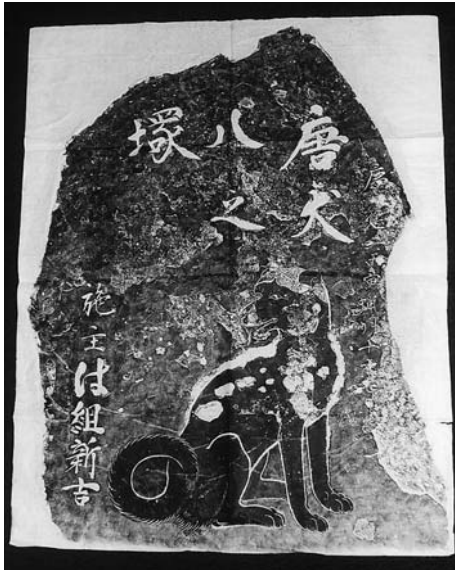 唐犬
八之
塚
施主は組新吉